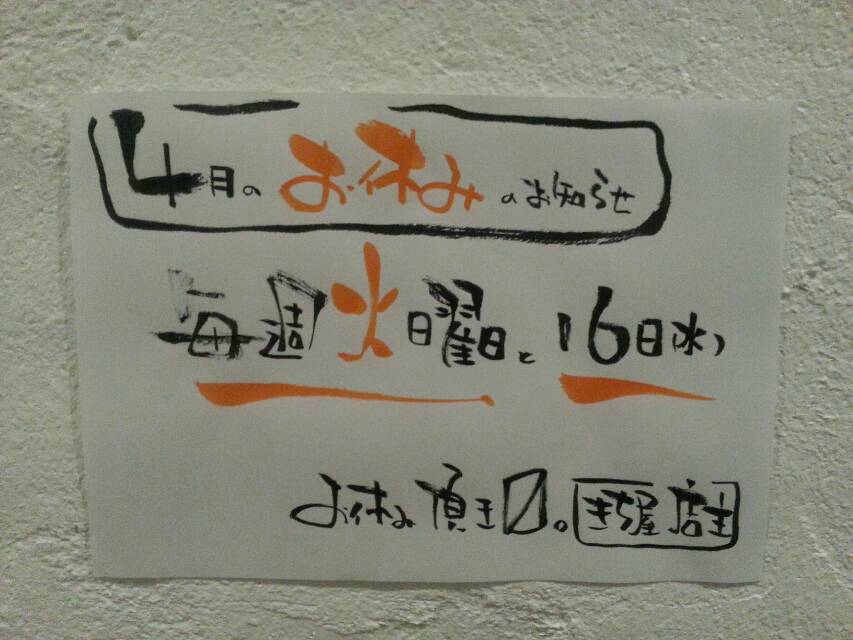 4月のお休みのお知らせ
毎週火曜日と16日(水)
お休み頂き〼。きち屋店主